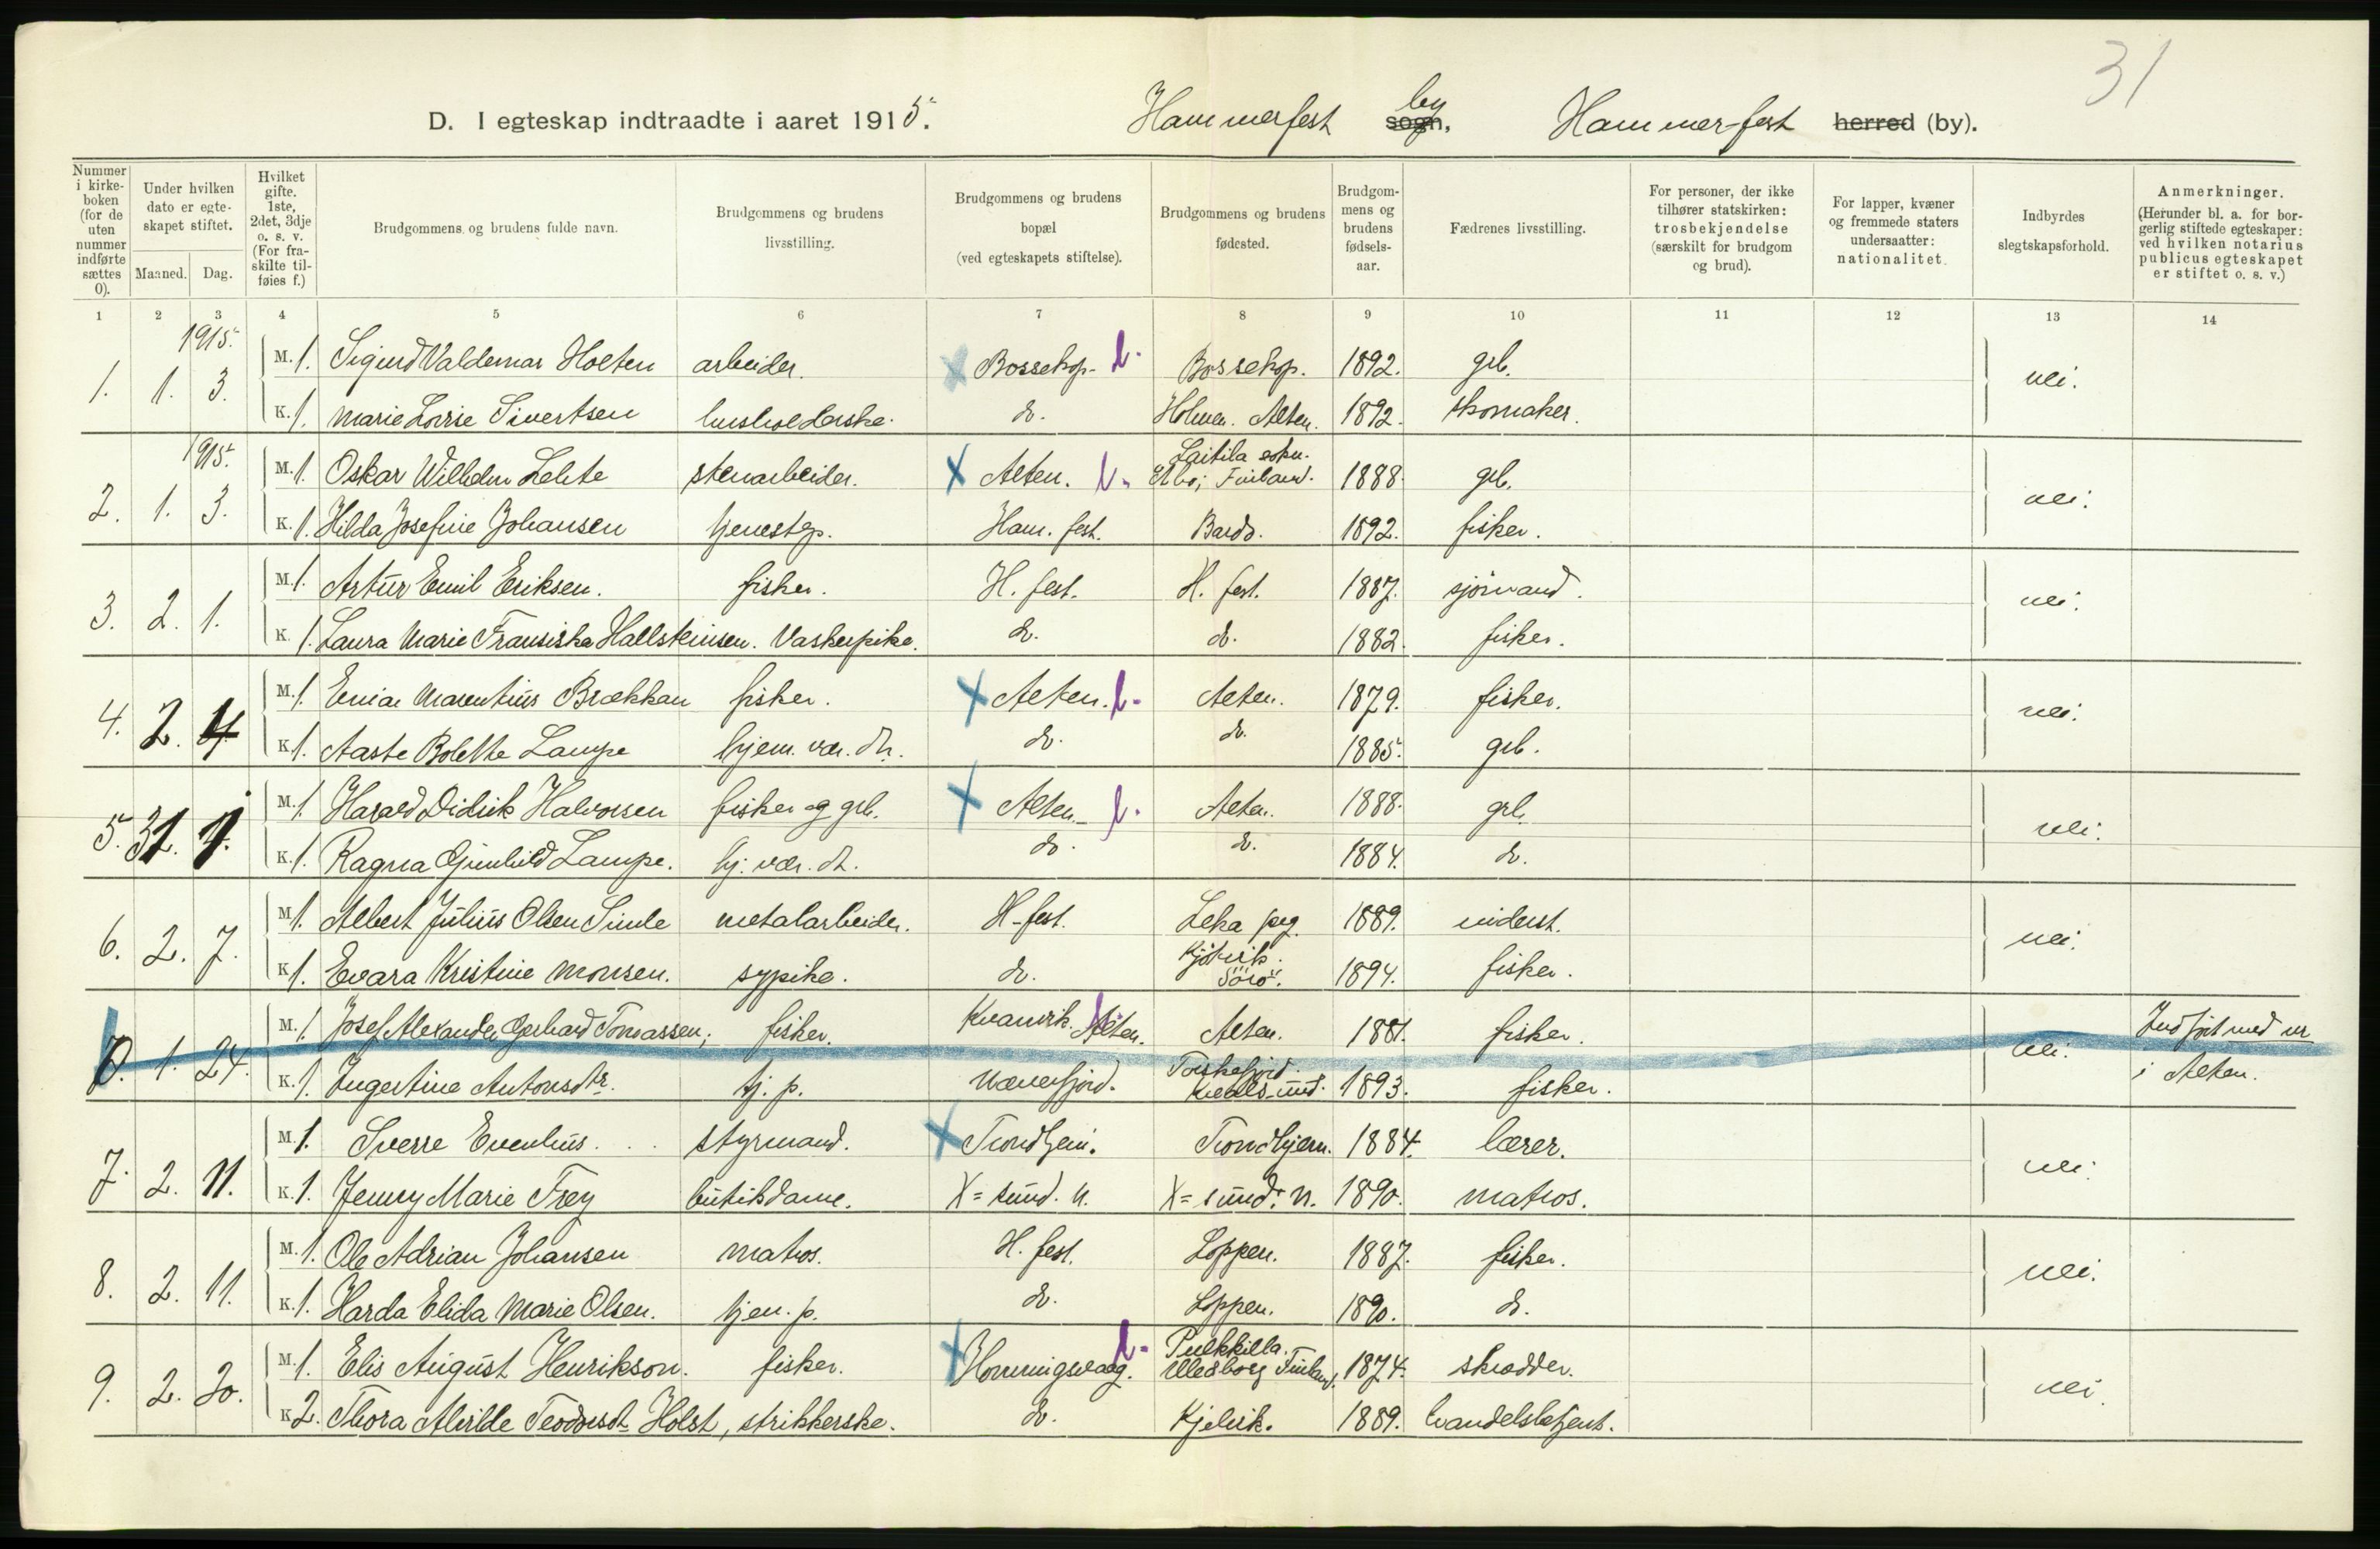 31
D. I egteskap indtraadte i aaret 1915. Hammerfest by sogn, Hammerfest herred (by).
Nummer i kirkeboken (for de uten nummer indførte sættes 0).
Under hvilken dato er egteskapet stiftet.
Maaned. Dag.
Hvilket gifte. 1ste, 2det, 3dje o. s. v. (For fraskilte tilføies f.)
Brudgommens og brudens fulde navn.
Brudgommens og brudens livsstilling.
Brudgommens og brudens bopæl (ved egteskapets stiftelse).
Brudgommens og brudens fødested.
Brudgommens og brudens fødselsaar.
Fædrenes livsstilling.
For personer, der ikke tilhører statskirken: trosbekjendelse (særskilt for brudgom og brud).
For lapper, kvæner og fremmede staters undersaatter: nationalitet.
Indbyrdes slegtskapsforhold.
Anmerkninger. (Herunder bl. a. for borgerlig stiftede egteskaper: ved hvilken notarius publicus egteskapet er stiftet o. s. v.)
1 2 3 4 5 6 7 8 9 10 11 12 13 14
1915.
1. 1. 3. M. 1. Sigurd Valdemar Holten arbeider. Bossekop. Bossekop. 1892. grb. nei.
K. 1. Marie Lovise Sivertsen husholderske. do. Holmen. Alten. 1892. skomaker.
1915.
2. 1. 3. M. 1. Oskar Wilhelm Lehte stenarbeider. X Alten. Laitila sokn. Åbo, Finland. 1888. grb. nei.
K. 1. Hilda Josefine Johansen tjenestep. Ham. fest. Bardo. 1892. fisker.
3. 2. 1. M. 1. Artur Emil Eriksen. fisker. H. fest. H. fest. 1887. sjömand. nei.
K. 1. Laura Marie Fransiska Hallsteinsen. Vaskepike. do. do. 1882. fisker.
4. 2. 4 M. 1. Einar Marentius Brækkan fisker. X Alten. Alten. 1879. fisker. nei.
K. 1. Aaste Bolette Lampe hjem. vær. dtr. do. do. 1885. grb.
5. M. 1. Harald Didrik Halvorsen fisker og grb. X Alten. Alten. 1888. grb. nei.
K. 1. Ragna Gunhild Lampe. hj. vær. dt. do. do. 1884. do.
6. 2. 7. M. 1. Albert Julius Olsen Simle metalarbeider. H-fest. Leka prg. 1889. inderst. nei.
K. 1. Evara Kristine Monsen. sypike. do. Kjötvik. Sörö. 1894. fisker.
0. 1. 24. M. 1. Josef Alexander Gerhard Tomassen; fisker. Kvanvik. Alten. Alten. 1881. fisker. nei. Indfört med nr
K. 1. Ingertine Antonsdtr. tj. p. Næverfjord. Torskefjord. Kvalsund. 1893. fisker. i Alten.
7. 2. 11. M. 1. Sverre Evenhus. styrmand. X Trondhjem. Trondhjem. 1884. lærer. nei.
K. 1. Jenny Marie Frey butikdame. X=sund. N. X=sund. N. 1890. matros.
8. 2. 11. M. 1. Ole Adrian Johansen matros. H. fest. Loppen. 1887. fisker. nei.
K. 1. Harda Elida Marie Olsen. tjen. p. do. Loppen. 1890. do.
9. 2. 20. M. 1. Elis August Henrikson. fisker. X Honningsvaag. Pulkkilla. Uleåborg Finland. 1874. skrædder. nei.
K. 2. Thora Alvilde Teodorsdt. Holst, strikkerske. do. Kjelvik. 1889. handelsbetjent.